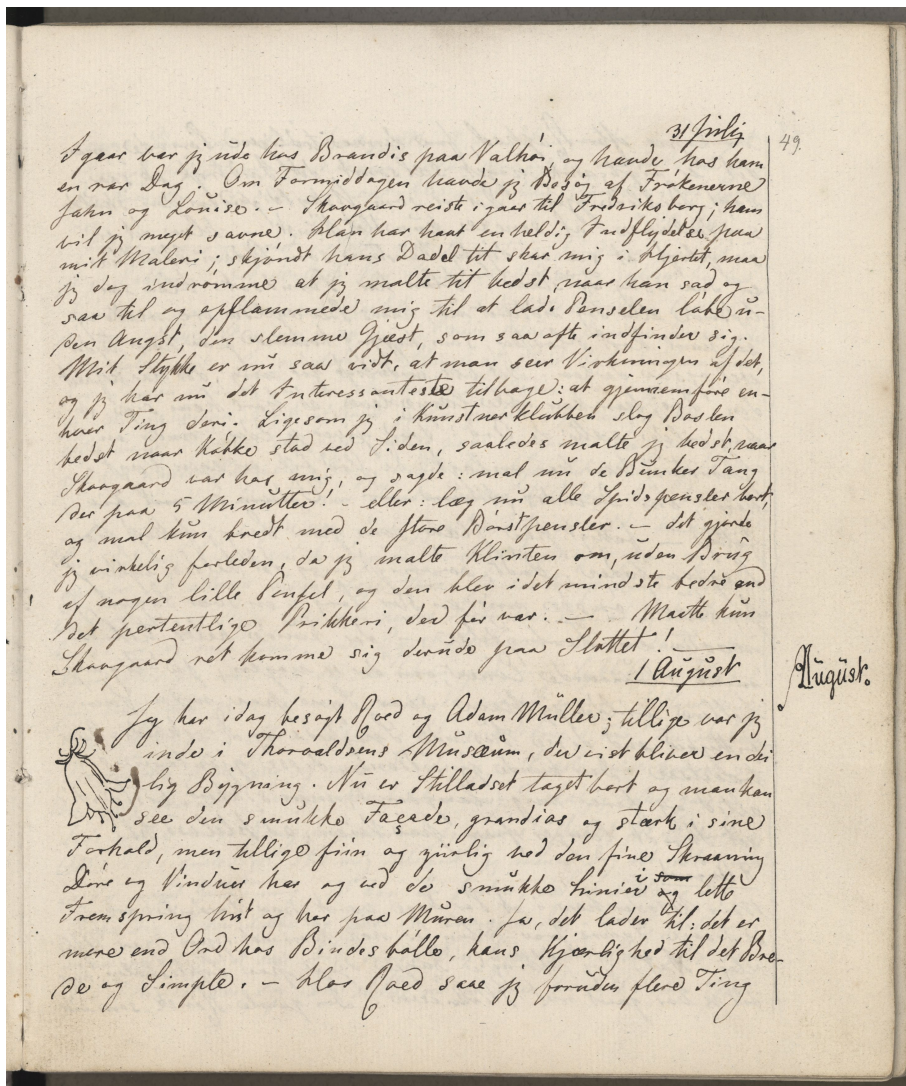 31 Juli
49.
Igaar var jeg ude hos Brandis paa Valhöi, og havde hos ham
en rar Dag. Om Formiddagen havde jeg Besög af Frökenerne
Jahn og Louise. – Skovgaard reiste igaar til Fredriksborg; ham
vil jeg meget savne. Han har havt en heldig Indflydelse paa
mit Maleri; skjöndt hans Dadel tit skar mig i Hjertet, maa
jeg dog indrömme at jeg malte tit bedst, naar han sad og
saa til og opflammede mig til at lade Penselen löbe u-
den Angst, den slemme Gjæst, som saa ofte indfinder sig.
Mit Stykke er nu saa vidt, at man seer Virkningen af det,
og jeg har nu det Interessanteste tilbage: at gjennemföre en-
hver Ting deri. Ligesom jeg i Kunstnerklubben slog Boslen
bedst naar Köbke stod ved Siden, saaledes malte jeg bedst, naar
Skovgaard var hos mig, og sagde: mal nu de Bunker Tang
der paa 5 Minutter! – eller: læg nu alle Spidspensler bort,
og mal kun bredt med de store Börstpensler. – det gjorde
jeg virkelig forleden, da jeg malte Klinten om, uden Brug
af nogen lille Pensel, og den blev i det mindste bedre end
det pertentlige Prikkeri, der för var. – Maatte kun
Skovgaard ret komme sig derude paa Slottet! –
1 August
August.
Jeg har idag besögt Roed og Adam Müller; tillige var jeg
inde i Thorvaldsens Musæum, der vist bliver en dei
lig Bygning. Nu er Stilladset taget bort og man kan
see den smukke Façade, grandios og stærk i sine
Forhold, men tillige fiin og ziirlig ved den fine Skraaning
Döre og Vinduer har og ved de smukke Linier i som og lette
Fremspring hist og her paa Muren. Ja, det lader til: det er
mere end Ord hos Bindesbölle, hans Kjærlighed til det Bre-
de og Simple. – Hos Roed saae jeg foruden flere Ting